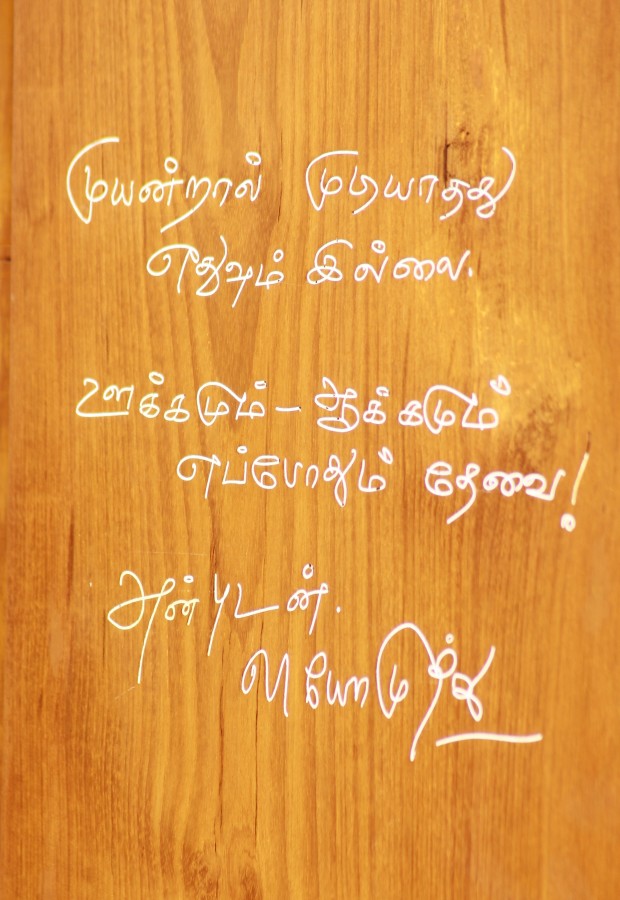 முயன்றால் முடியாதது
எதுவும் இல்லை.
ஊக்கமும் – ஆக்கமும்
எப்போதும் தேவை!
அன்புடன்.